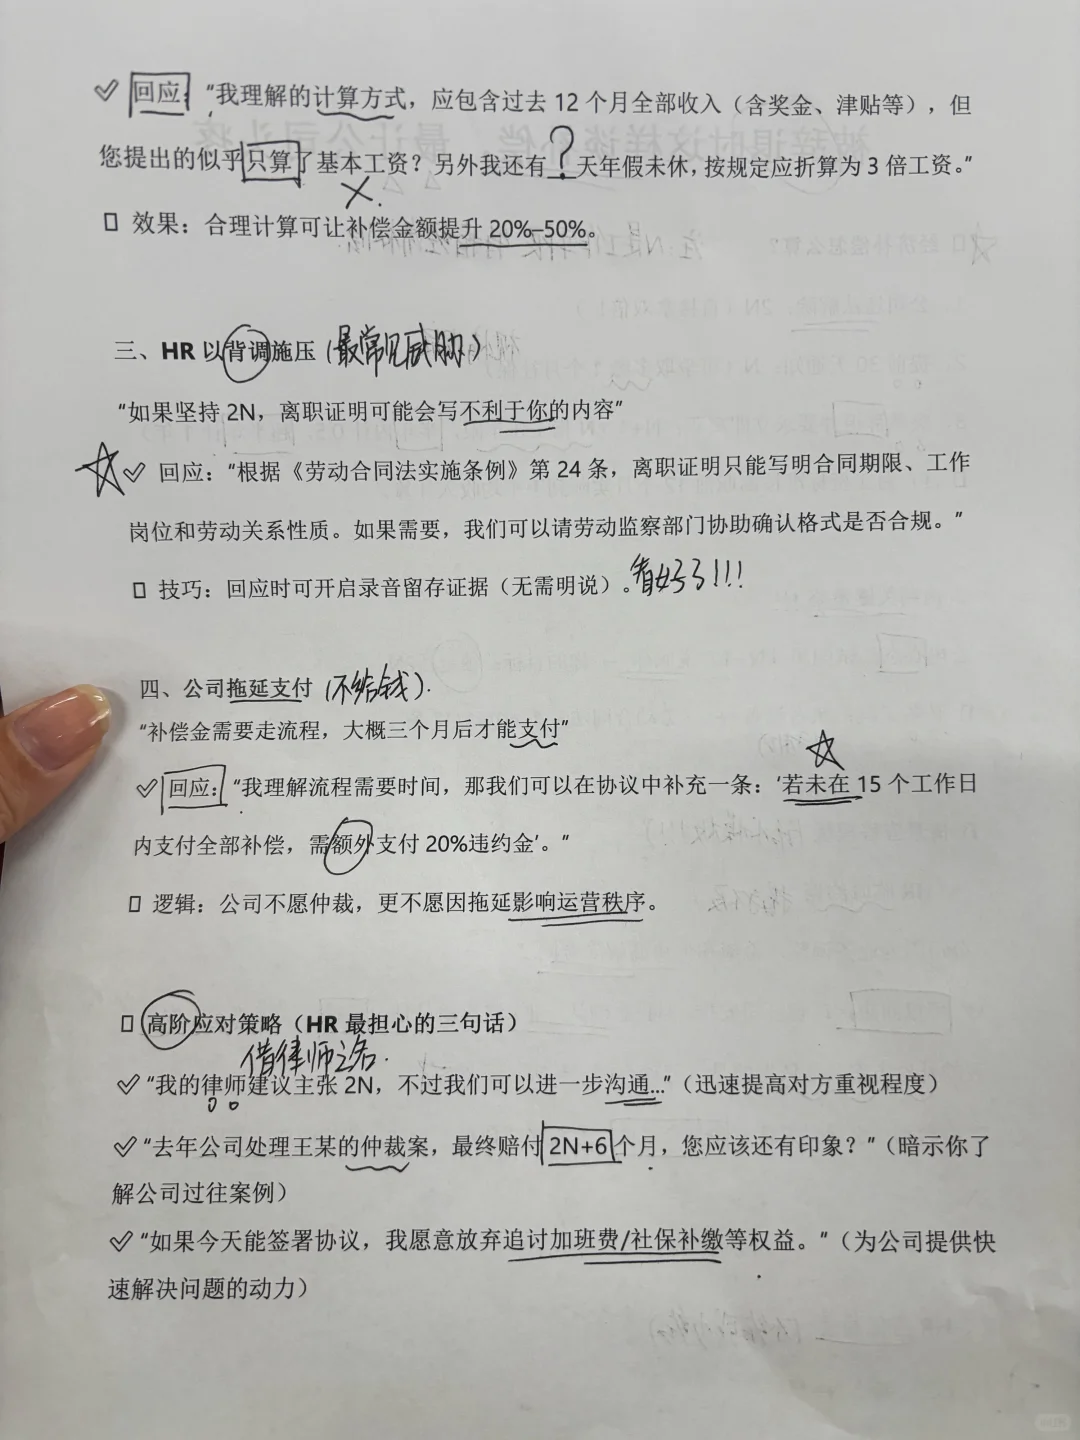 ✓ 回应:“我理解的计算方式，应包含过去 12 个月全部收入（含奖金、津贴等），但
您提出的似乎只算了基本工资？另外我还有__?__天年假未休，按规定应折算为 3 倍工资。”
✗.
▯ 效果：合理计算可让补偿金额提升 20%–50%。
三、HR 以背调施压（最常见威胁）
“如果坚持 2N，离职证明可能会写不利于你的内容”
☆ ✓ 回应：“根据《劳动合同法实施条例》第 24 条，离职证明只能写明合同期限、工作
岗位和劳动关系性质。如果需要，我们可以请劳动监察部门协助确认格式是否合规。”
▯ 技巧：回应时可开启录音留存证据（无需明说）。看好了!!!
四、公司拖延支付（不给钱）.
“补偿金需要走流程，大概三个月后才能支付”
☆
✓ 回应：“我理解流程需要时间，那我们可以在协议中补充一条：‘若未在 15 个工作日
内支付全部补偿，需额外支付 20%违约金’。”
▯ 逻辑：公司不愿仲裁，更不愿因拖延影响运营秩序。
▯ 高阶应对策略（HR 最担心的三句话）
借律师之名.
✓ “我的律师建议主张 2N，不过我们可以进一步沟通...”（迅速提高对方重视程度）
✓ “去年公司处理王某的仲裁案，最终赔付 2N+6 个月，您应该还有印象？”（暗示你了
解公司过往案例）
✓ “如果今天能签署协议，我愿意放弃追讨加班费/社保补缴等权益。”（为公司提供快
速解决问题的动力）